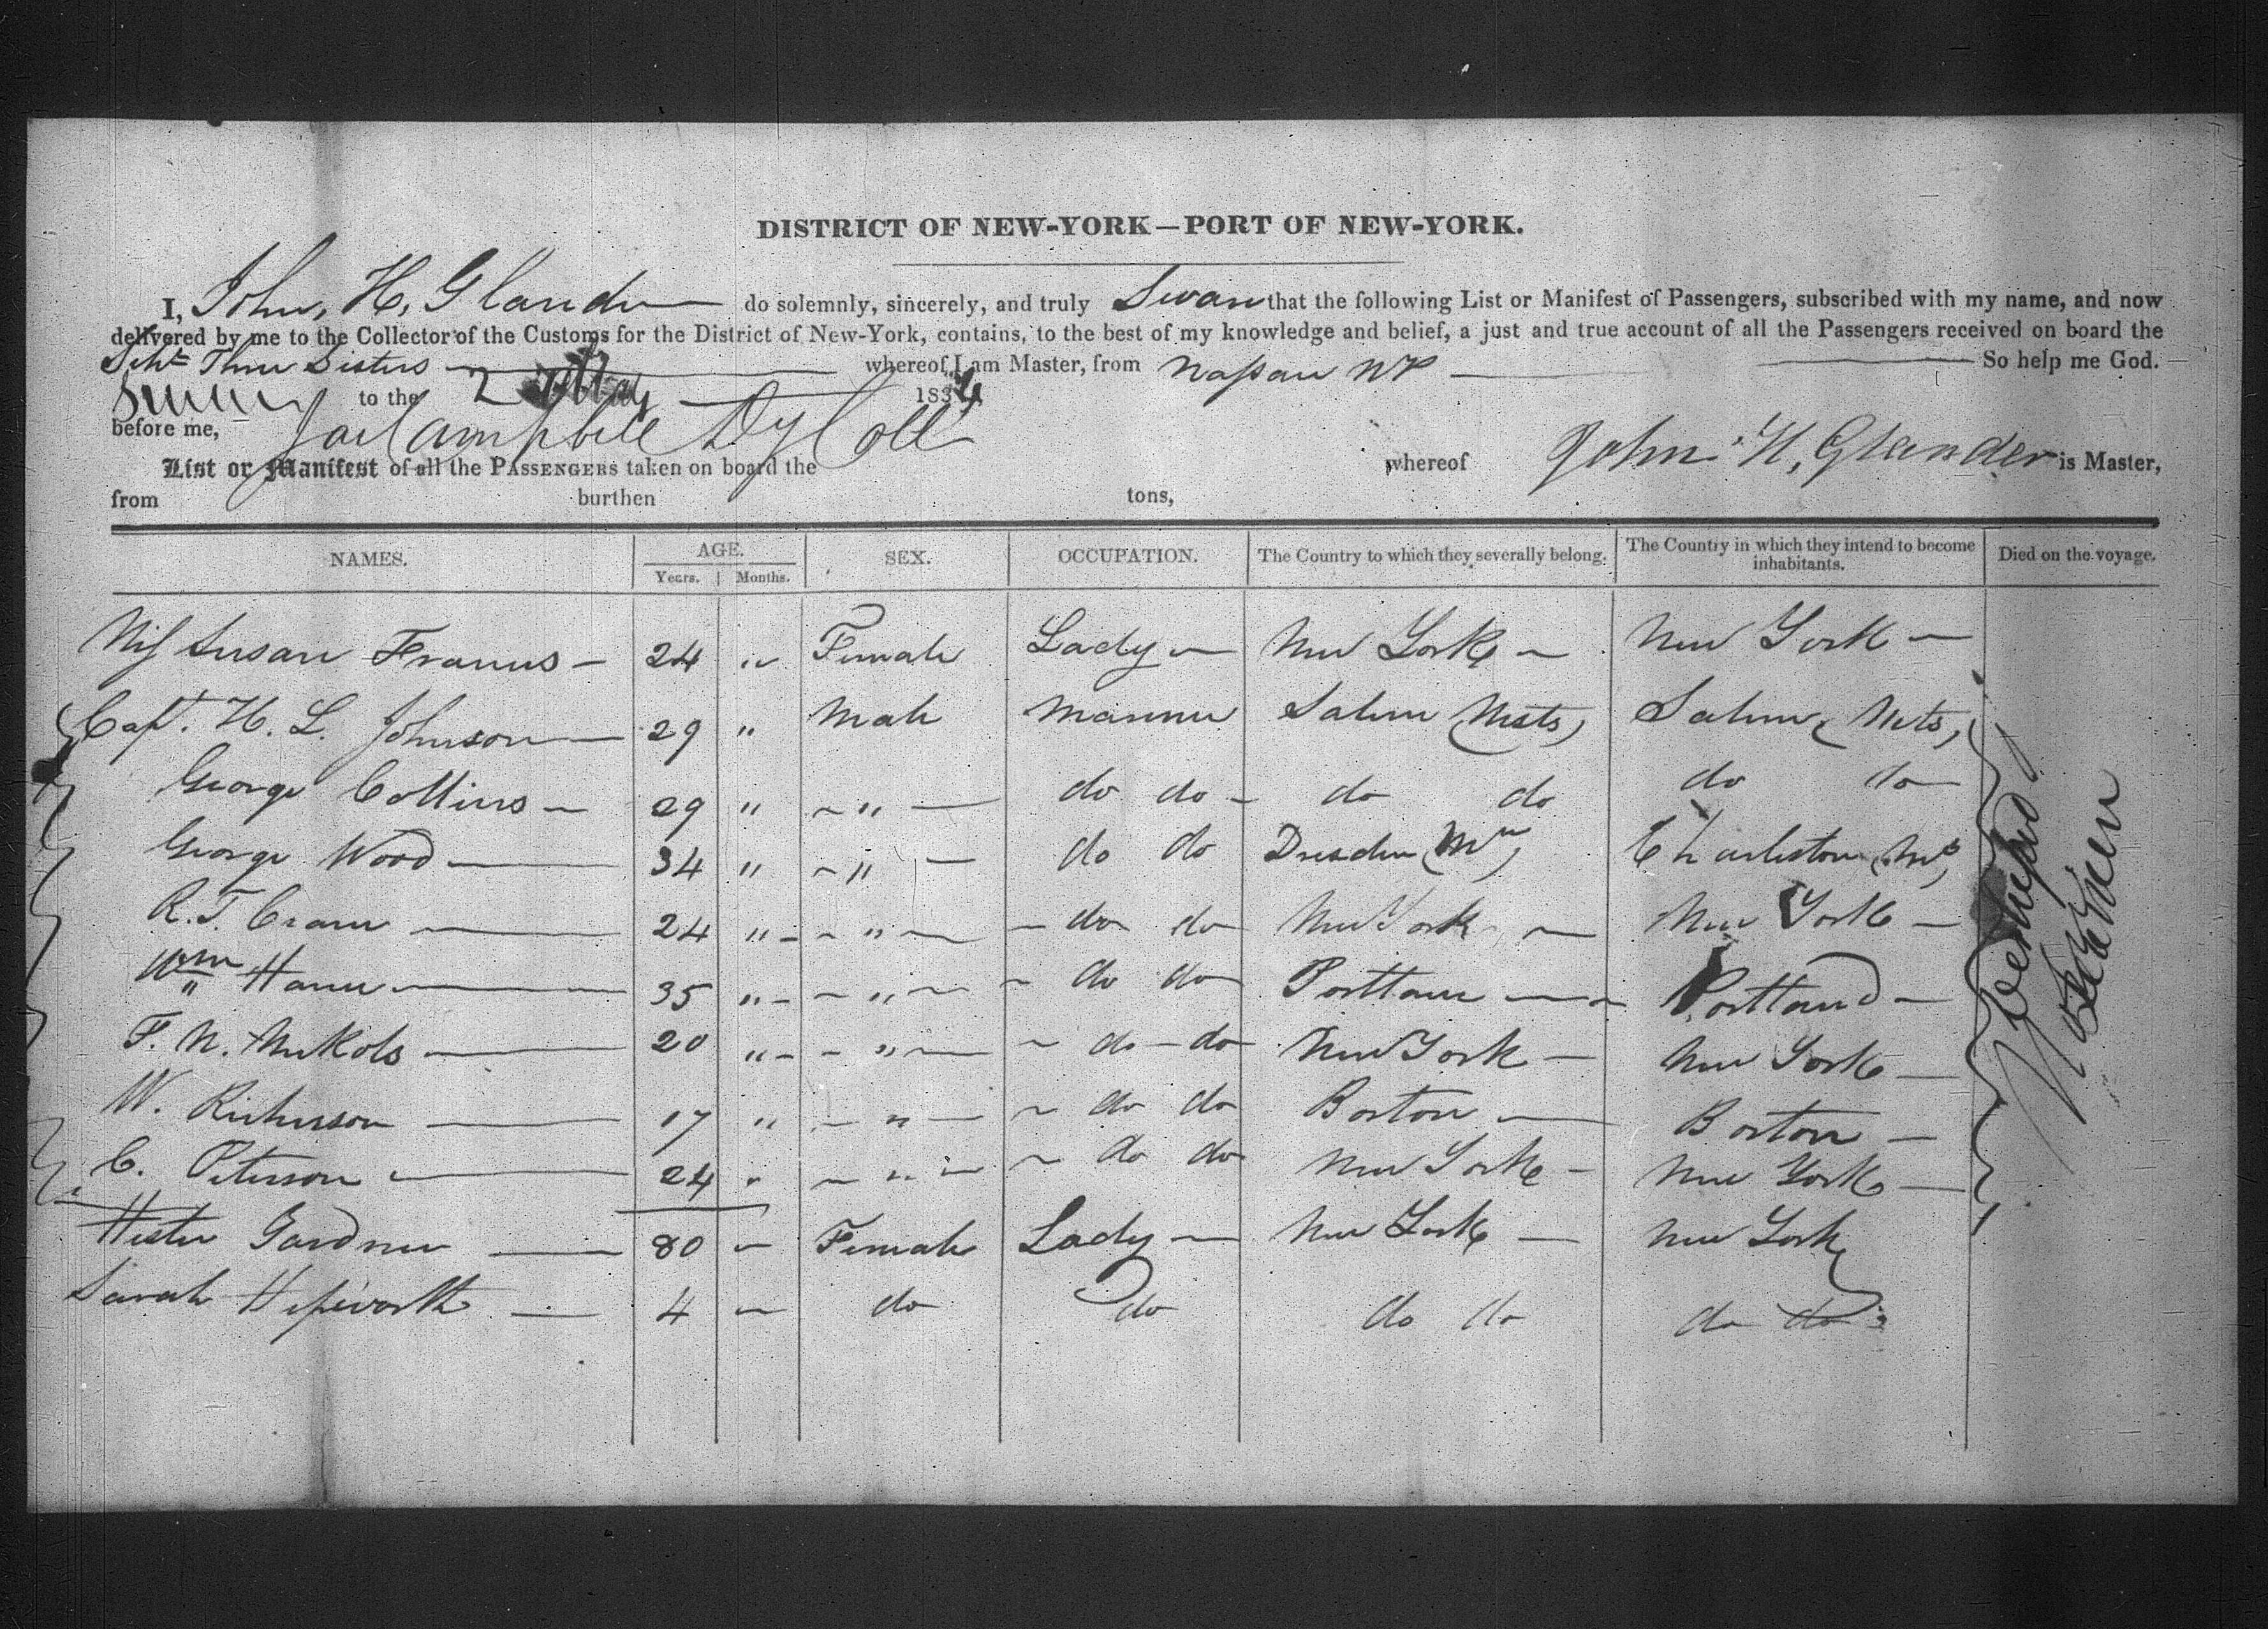 DISTRICT OF NEW-YORK—PORT OF NEW-YORK.
I, John, H, Glander do solemnly, sincerely, and truly Swear that the following List or Manifest of Passengers, subscribed with my name, and now
delivered by me to the Collector of the Customs for the District of New-York, contains, to the best of my knowledge and belief, a just and true account of all the Passengers received on board the
Schr Three Sisters whereof I am Master, from Nassau NP So help me God.
Sworn to the 2 May 1834
before me, Jas Campbell Dy Coll
List or Manifest of all the PASSENGERS taken on board the whereof John H, Glander is Master,
from burthen tons,
NAMES. AGE. SEX. OCCUPATION. The Country to which they severally belong. The Country in which they intend to become inhabitants. Died on the voyage.
Years. Months.
Miss Susan Francis — 24 " Female Lady — New York — New York —
Capt. H. L. Johnson — 29 " Male Mariner Salem (Msts) Salem (Mts)
George Collins — 29 " " — do do — do do do do
George Wood — 34 " " — do do Dresden (Me) Charleston (Ms)
R. T. Crane — 24 " " — do do New York — New York —
Wm Hanu — 35 " " — do do Portland — Portland —
F. N. Nickols — 20 " " — do — do New York — New York —
W. Richerson — 17 " " — do do Boston — Boston —
C. Peterson — 24 " " — do do New York — New York —
Hester Gardner — 80 — Female Lady — New York — New York
Sarah Hepworth — 4 — do do do do do do